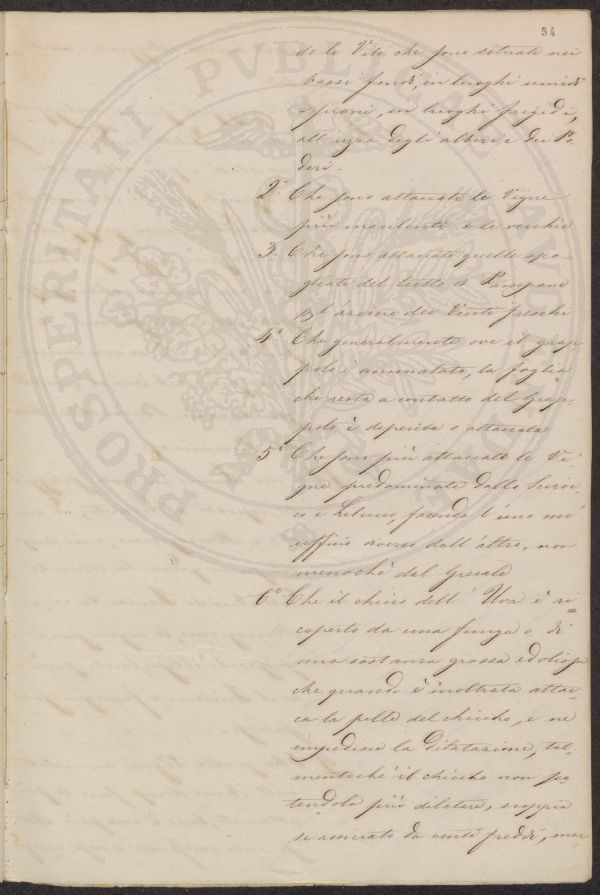 54
do le Viti che sono situate nei
bassi fondi, in luoghi umidi
e piani, in luoghi frigidi,
all' uzza degli alberi e dei Po-
deri.
2° Che sono attaccate le Vigne
più macilenti e le vecchie
3. Che sono attaccate quelle spo-
gliate del tutto di Pampane
dei Venti freschi
4° Che generalmente ove il grap-
polo è ammalato, la foglia
che resta a contatto del Grap-
polo è deperita o attaccata
5° Che sono più attaccate le Vi-
gne predominate dallo Sciroc-
co e Libeccio, facendo l'uno un'
ufficio diverso dall'altro, non
menochè dal Grecale
6° Che il chicco dell' Uva è ri-
coperto da una funga o di
una sostanza grossa ed oliosa
che quando è inoltrata attac-
ca la pelle del chiccho, e ne
impedisce la dilatazione, tal-
mentechè il chiccho non po-
tendola più dilatare, scoppia
se assiccato da venti freddi, mar
PROSPERITATI PUBLICAE AUGENDAE